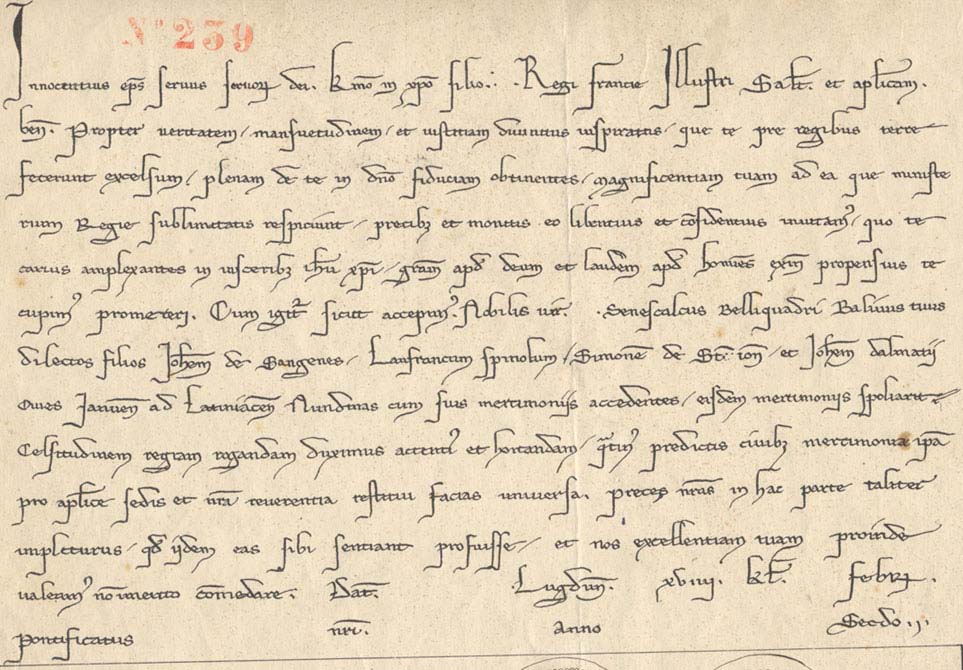 Nº 239
Innocentius ep̄s servus servoꝝ dei. K̄mo in xp̄o filio .. Regi francie Illustri Sal̄t. et aplicam.
ben̄. Propter veritatem / mansuetudinem / et iustitiam divinitus inspiratas / que te pre regibus terre
fecerunt excelsum / plenam de te in dn̄o fiduciam obtinentes / magnificentiam tuam ad ea que ministe
rium Regie sublimitatis respiciunt / precibꝫ et monitis eo libentius et cōfidentius invitam᾿ / quo te
carius amplexantes in visceribꝫ ih̄u xp̄i / gr̄am apd̄ deum et laudem apd̄ homīes exīn propensius te
cupim᾿ promereri. Cum igit᾿ sicut accepim᾿. Nobilis vir. . Senescalcus Belliquadri Balivus tuus
dilectos filios Joh̄em de Gangenes / Lanfrancum spinolum / Simonē de St̄. ion̄ / et Joh̄em dalmatij
Cives Januen̄ ad Latiniacen̄ Nundinas cum suis mercimoniis accedentes / eisdem mercimoniis spoliarit /
Celsitudinem regiam rogandam duximus attentē et hortandam / q̄tin᾿ predictis civibꝫ mercimonia ip̄a
pro aplice sedis et nr̄i reverentia restitui facias universa. preces nr̄as in hac parte taliter
impleturus / qd̄ ijdem eas sibi sentiant profuisse / et nos excellentiam tuam proinde
valeam᾿ non inmerito cōmendare. Dat̄. Lugdun̄. xviiii. kl̄. febrꝝ.
Pontificatus nr̄i. Anno Secdo ij.